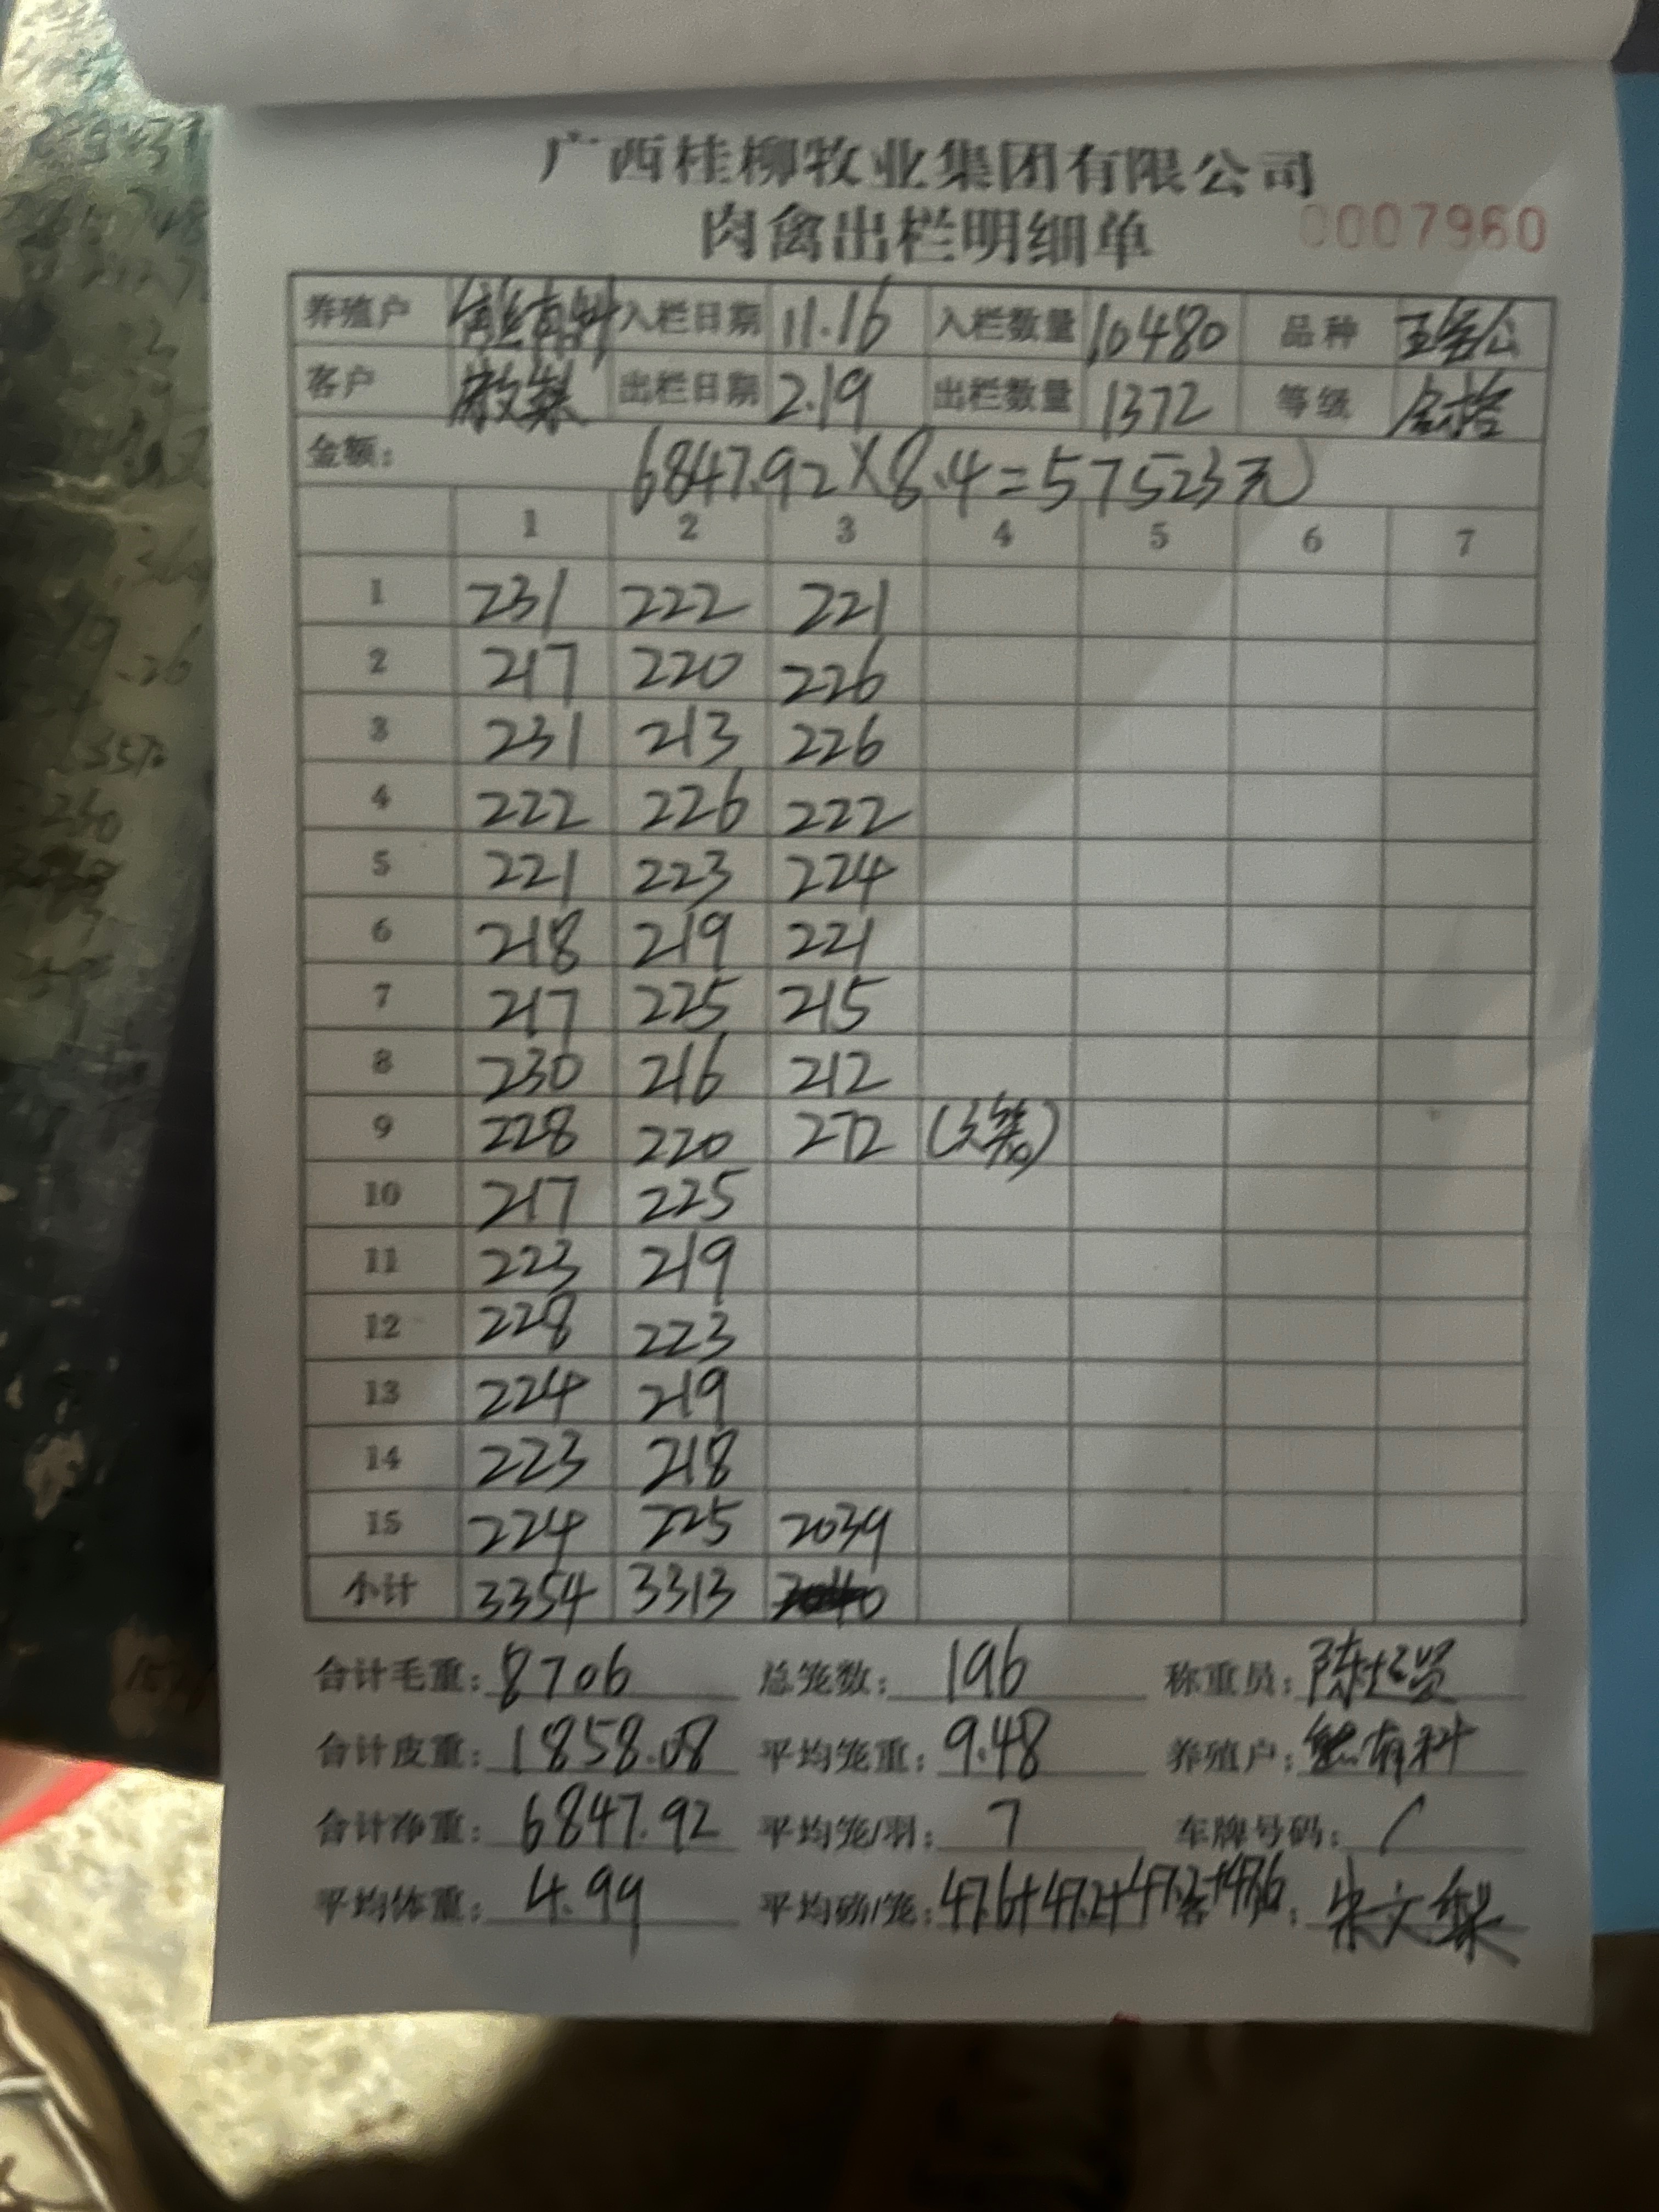 广西桂柳牧业集团有限公司
肉禽出栏明细单 0007960
养殖户 熊有科 入栏日期 11.16 入栏数量 10480 品种
客户 入栏日期 2.19 出栏数量 1372 等级 合格
金额: 6847.92×8.4=57523元
1 2 3 4 5 6 7
1 231 222 221
2 217 220 226
3 231 213 226
4 222 226 222
5 221 223 224
6 218 219 221
7 217 225 215
8 230 216 212
9 228 220 272
10 217 225
11 223 219
12 228 223
13 224 219
14 223 218
15 224 225 2039
小计 3354 3313
合计毛重: 8706 总笼数: 196 称重员:
合计皮重: 1858.08 平均笼重: 9.48 养殖户: 熊有科
合计净重: 6847.92 平均笼/羽: 7 车牌号码: /
平均体重: 4.99 平均磅/笼: 47.6+47.2+47.2+47.6 客户: 宋文